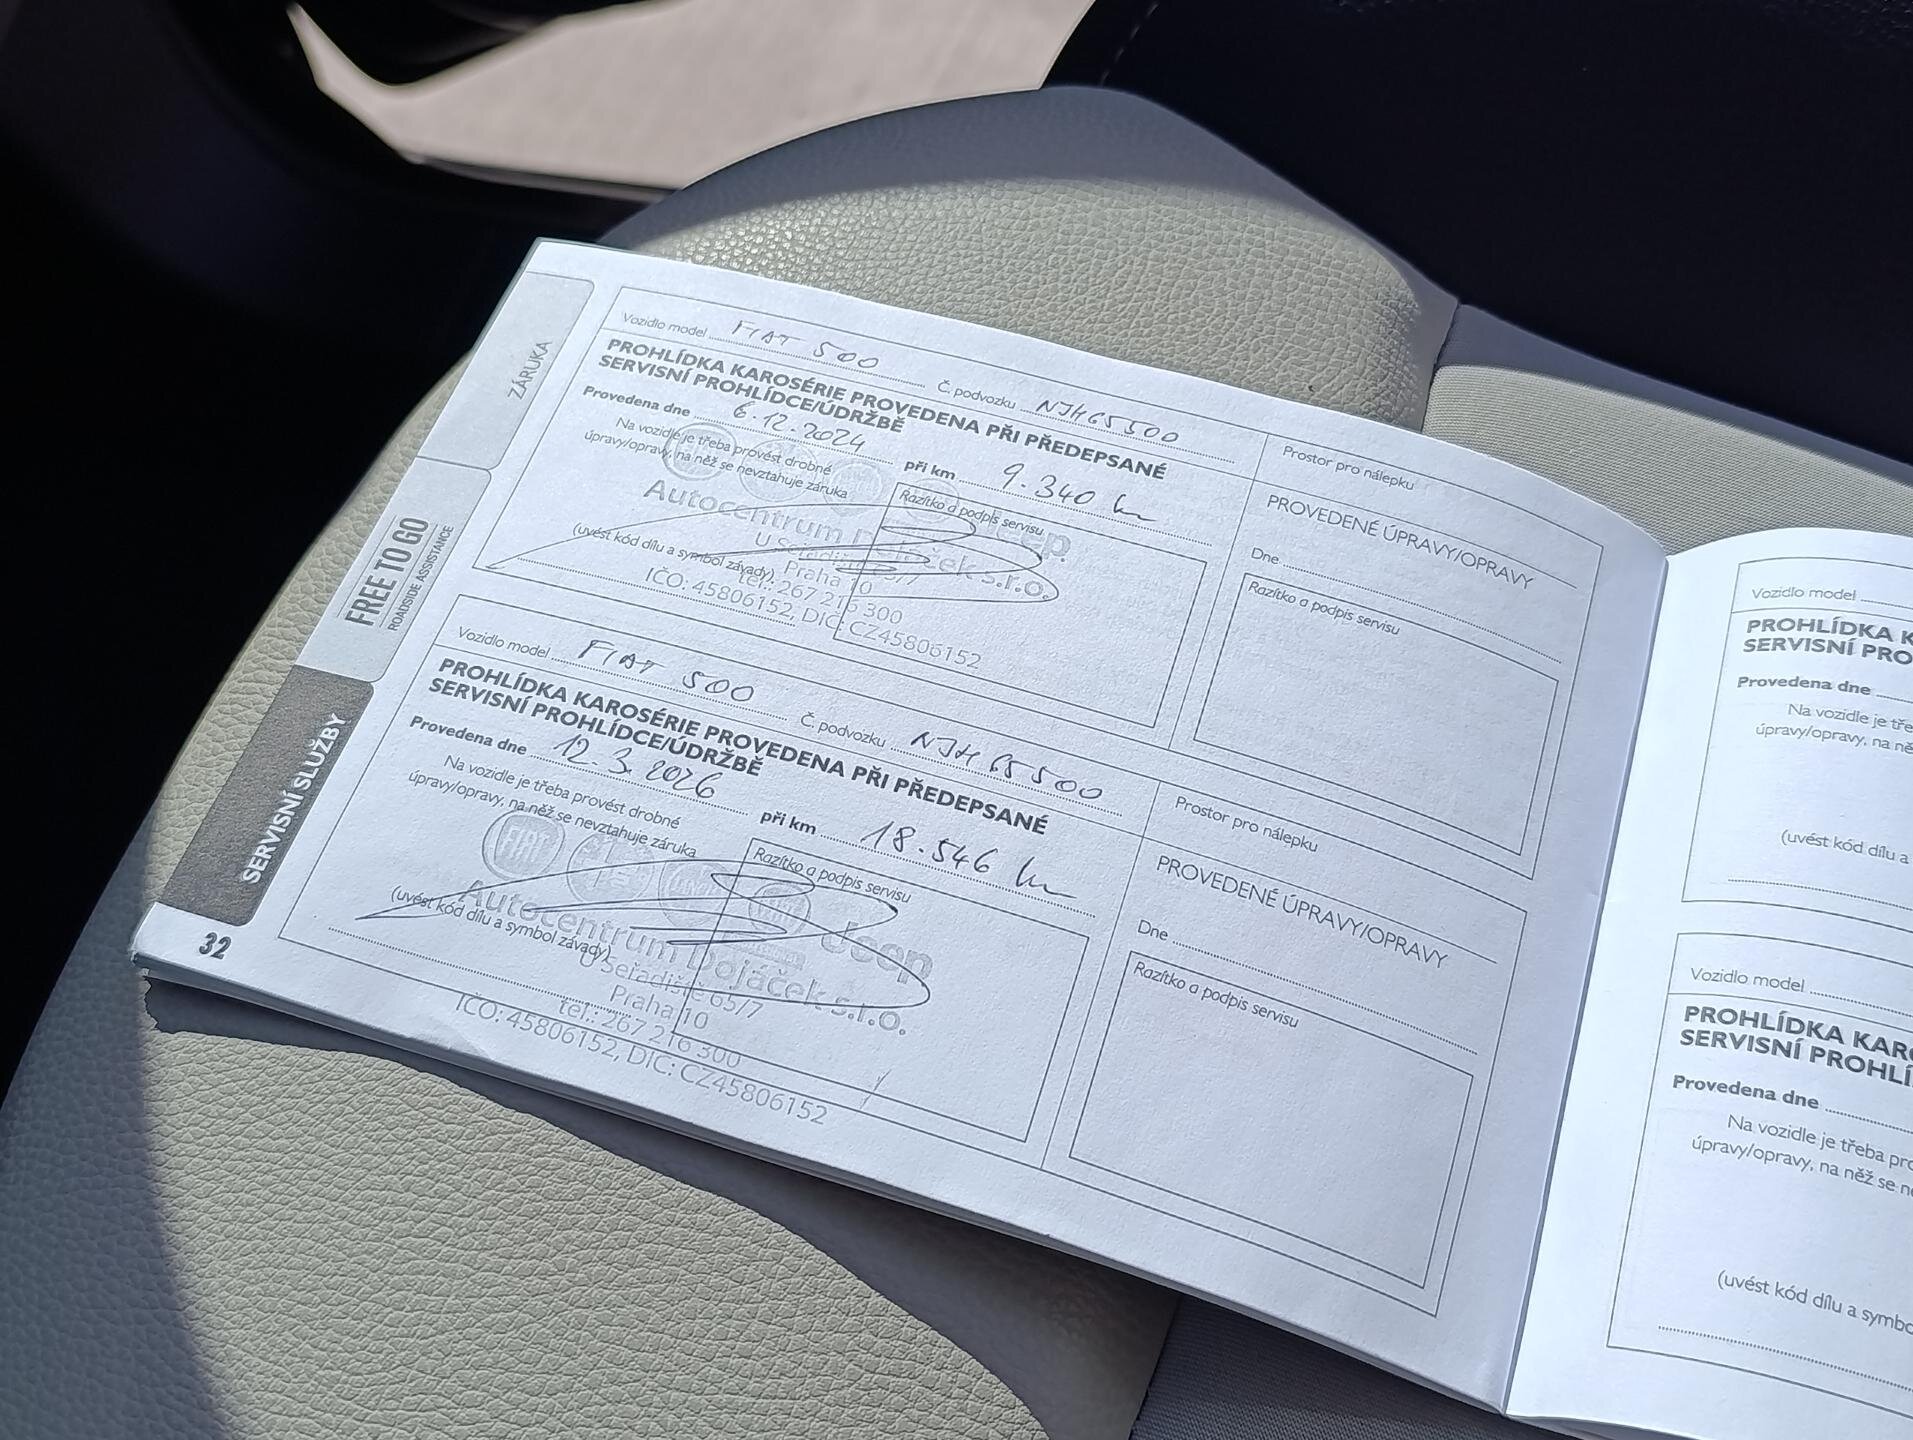 ZÁRUKA
FREE TO GO
ROADSIDE ASSISTANCE
SERVISNÍ SLUŽBY
32
Vozidlo model FIAT 500 Č. podvozku NJH65500
PROHLÍDKA KAROSÉRIE PROVEDENA PŘI PŘEDEPSANÉ
SERVISNÍ PROHLÍDCE/ÚDRŽBĚ
Provedena dne 6.12.2024 při km 9.340 km
Na vozidle je třeba provést drobné
úpravy/opravy, na něž se nevztahuje záruka
Razítko a podpis servisu
(uvést kód dílu a symbol závady)
Jeep
Autocentrum Dojáček s.r.o.
U Seřadiště 65/7
Praha 10
tel.: 267 216 300
IČO: 45806152, DIČ: CZ45806152
Prostor pro nálepku
PROVEDENÉ ÚPRAVY/OPRAVY
Dne
Razítko a podpis servisu
Vozidlo model FIAT 500 Č. podvozku NJH65500
PROHLÍDKA KAROSÉRIE PROVEDENA PŘI PŘEDEPSANÉ
SERVISNÍ PROHLÍDCE/ÚDRŽBĚ
Provedena dne 12.3.2026 při km 18.546 km
Na vozidle je třeba provést drobné
úpravy/opravy, na něž se nevztahuje záruka
Razítko a podpis servisu
(uvést kód dílu a symbol závady)
FIAT
Jeep
Autocentrum Dojáček s.r.o.
U Seřadiště 65/7
Praha 10
tel.: 267 216 300
IČO: 45806152, DIČ: CZ45806152
Prostor pro nálepku
PROVEDENÉ ÚPRAVY/OPRAVY
Dne
Razítko a podpis servisu
Vozidlo model
PROHLÍDKA K
SERVISNÍ PRO
Provedena dne
Na vozidle je tře
úpravy/opravy, na ně
(uvést kód dílu a
Vozidlo model
PROHLÍDKA KARO
SERVISNÍ PROHLÍ
Provedena dne
Na vozidle je třeba pro
úpravy/opravy, na něž se ne
(uvést kód dílu a symbo